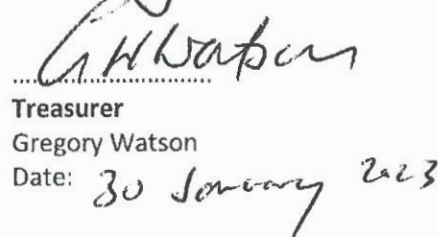 GWWatson
Treasurer
Gregory Watson
Date: 30 January 2023